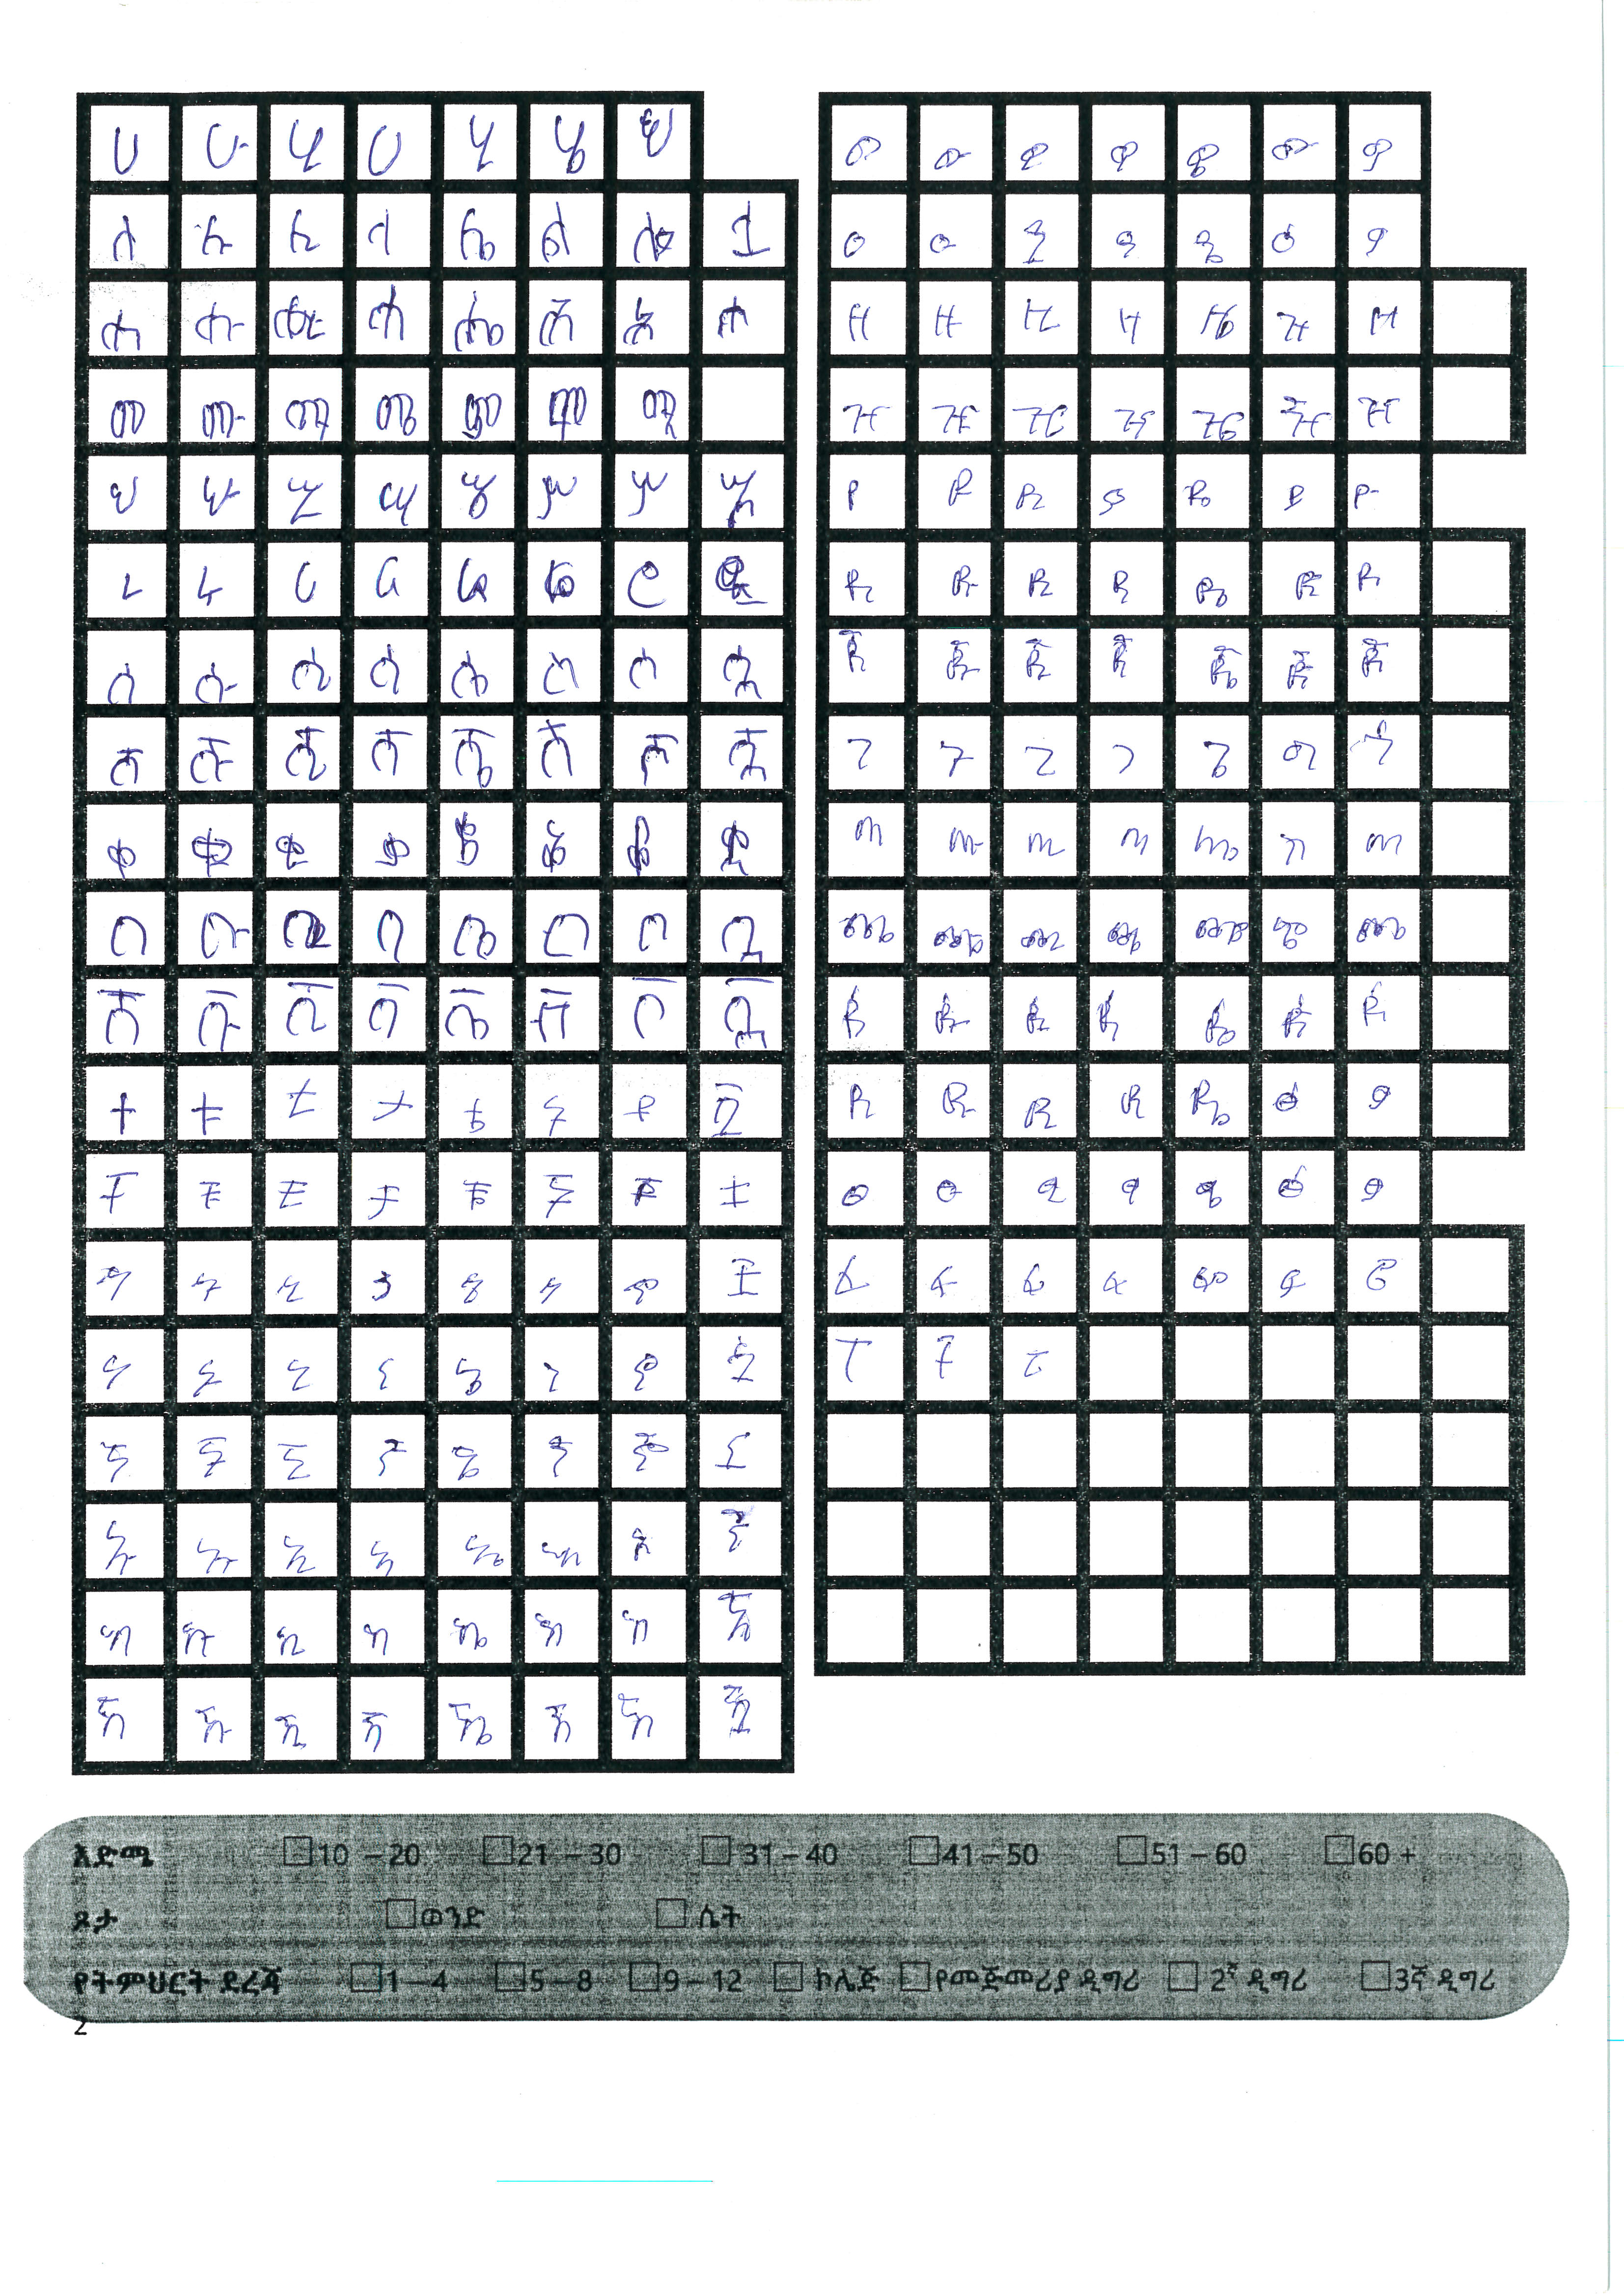 ሀ ሁ ሂ ሃ ሄ ህ ሆ
ለ ሉ ሊ ላ ሌ ል ሎ ሏ
ሐ ሑ ሒ ሓ ሔ ሕ ሖ
መ ሙ ሚ ማ ሜ ም ሞ
ሠ ሡ ሢ ሣ ሤ ሥ
ረ ሩ ሪ ራ ሬ ር ሮ ሯ
ሰ ሱ ሲ ሳ ሴ ስ ሶ ሷ
ሸ ሹ ሺ ሻ ሼ ሽ ሾ ሿ
ቀ ቁ ቂ ቃ ቄ ቅ ቆ ቋ
በ ቡ ቢ ባ ቤ ብ ቦ ቧ
ቨ ቩ ቪ ቫ ቬ ቭ ቮ ቯ
ተ ቱ ቲ ታ ቴ ት ቶ ቷ
ቸ ቹ ቺ ቻ ቼ ች ቾ ቿ
ኀ ኁ ኂ ኃ ኄ ኅ ኆ
ነ ኑ ኒ ና ኔ ን ኖ ኗ
ኘ ኙ ኚ ኛ ኜ ኝ ኞ ኟ
አ ኡ ኢ ኣ ኤ እ ኦ
ከ ኩ ኪ ካ ኬ ክ ኮ
ኸ ኹ ኺ ኻ ኼ ኽ ኾ
ወ ዉ ዊ ዋ ዌ ው ዎ
ዐ ዑ ዒ ዓ ዔ ዕ ዖ
ዘ ዙ ዚ ዛ ዜ ዝ ዞ
ዠ ዡ ዢ ዣ ዤ ዥ ዦ
የ ዩ ዪ ያ ዬ ይ ዮ
ደ ዱ ዲ ዳ ዴ ድ ዶ
ጀ ጁ ጂ ጃ ጄ ጅ ጆ
ገ ጉ ጊ ጋ ጌ ግ ጎ
ጠ ጡ ጢ ጣ ጤ ጥ ጦ
ጨ ጩ ጪ ጫ ጬ ጭ ጮ
ጰ ጱ ጲ ጳ ጴ ጵ ጶ
ጸ ጹ ጺ ጻ ጼ ፅ ፆ
ፀ ፁ ፂ ፃ ፄ ፅ ፆ
ፈ ፉ ፊ ፋ ፌ ፍ ፎ
ፐ ፑ ፒ
እድሜ 10 – 20 21 – 30 31 – 40 41 – 50 51 – 60 60 +
ጾታ ወንድ ሴት
የትምህርት ደረጃ 1 – 4 5 – 8 9 – 12 ኮሌጅ የመጀመሪያ ዲግሪ 2ኛ ዲግሪ 3ኛ ዲግሪ
2